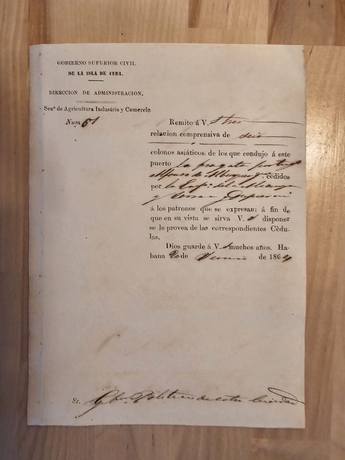 GOBIERNO SUPERIOR CIVIL
DE LA ISLA DE CUBA.
DIRECCION DE ADMINISTRACION,
Secn de Agricultura Industria y Comercio
Num. 51
Remito á V. otra
relacion comprensiva de seis
colonos asiáticos de los que condujo á este
puerto la fragata
cedidos
por la
y
á los patronos que se expresan; á fin de
que en su vista se sirva V. disponer
se le provea de las correspondientes Cédu-
las.
Dios guarde á V. muchos años. Ha-
bana 20 de de 186
Sr. Gbor Politico de esta Ciudad